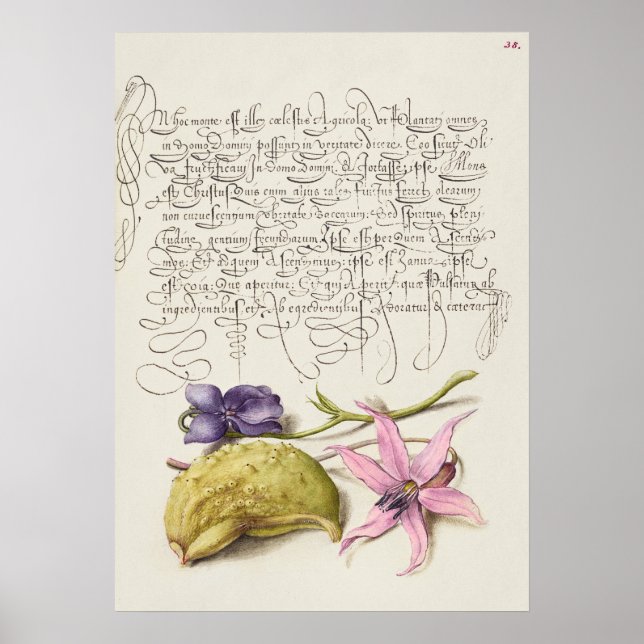 38.
In hoc monte est ille cœlestis Agricola: Ut Plantati omnes
in Domo Domini possunt in veritate dicere. Ego sicut Oli
va fructificavi In domo Domini. Et fortasse ipse Mons
est Christus. Quis enim alius tales fructus ferret olearum
non curvescentium ubertate Baccarum: Sed spiritus pleni
tudine gentium fecundarum Ipse est per Quem Ascendi
mus: Et ad quem Ascendimus: ipse est Janua: ipse
est via: Quæ aperitur: Et qui Aperit: quæ Pulsatur ab
ingredientibus et Ab egredientibus Adoratur & cætera